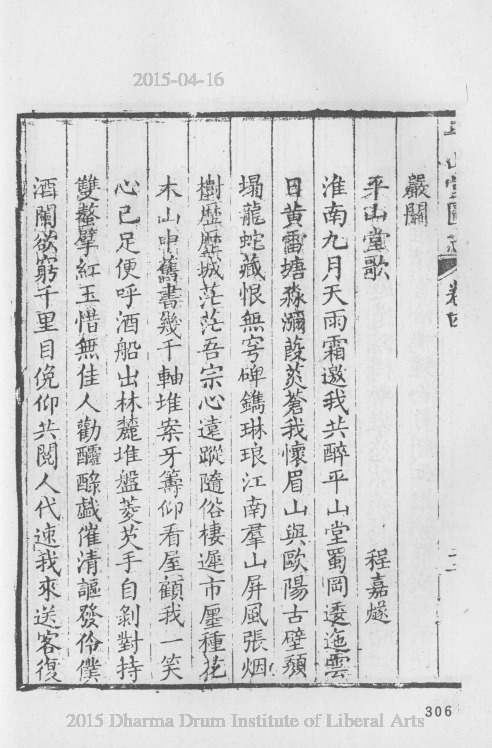 2015-04-16
平山堂圖志 卷四 二
嚴關
平山堂歌 程嘉燧
淮南九月天雨霜邀我共醉平山堂蜀岡逶迤雲
日黄雷塘淼瀰葭菼蒼我懷眉山與歐陽古壁頹
塌龍蛇藏恨無穹碑鐫琳琅江南羣山屏風張烟
樹歷歷城茫茫吾宗心遠蹤隨俗棲遲市廛種花
木山中舊書幾千軸堆案牙籌仰看屋顧我一笑
心已足便呼酒船出林麓堆盤菱芡手自剝對持
雙螯擘紅玉惜無佳人勸醽醁戲催清謳發伶僕
酒闌欲窮千里目俛仰共閱人代速我來送客復
306
2015 Dharma Drum Institute of Liberal Arts